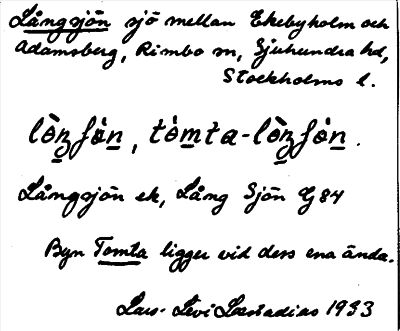 Långsjön sjö mellan Ekebyholm och
Adamsberg, Rimbo sn, Sjuhundra hd,
Stockholms l.
lòŋʃön, tòmta-lòŋʃön.
Långsjön ek, Lång Sjön G84
Byn Tomta ligger vid dess ena ända.
Lars-Levi Læstadius 1933